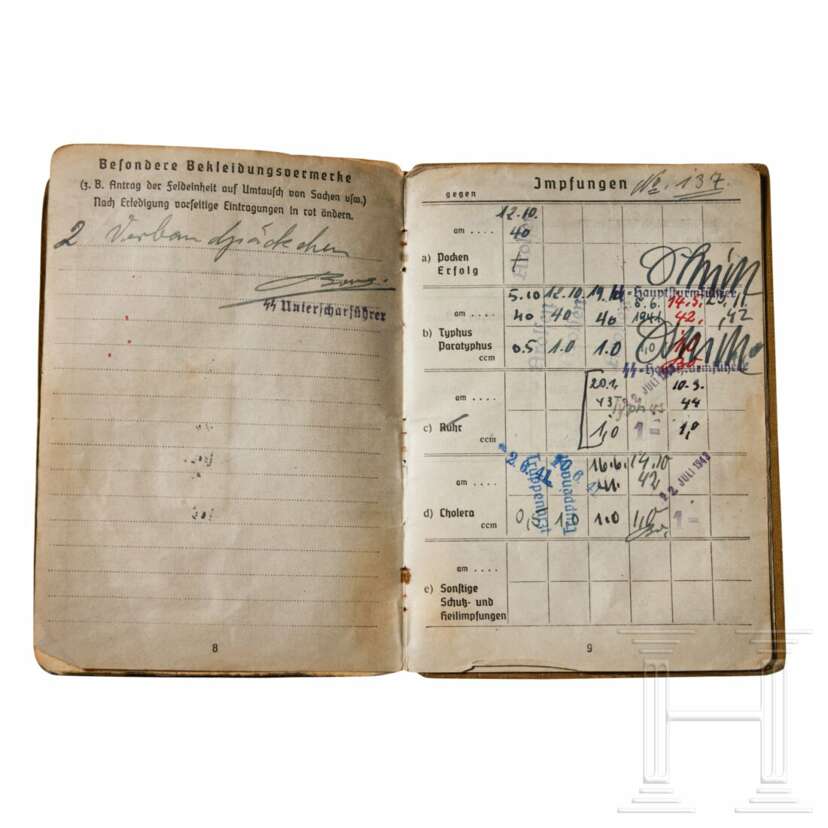 Besondere Bekleidungsvermerke
(z. B. Antrag der Feldeinheit auf Umtausch von Sachen usw.)
Nach Erledigung vorseitige Eintragungen in rot ändern.
2 Verbandpäckchen
SS Unterscharführer
8
gegen Impfungen No. 137.
12.10.
am .... 40
a) Pocken +
Erfolg
SS-Hauptsturmführer
5.10 12.10. 19.10 6.6. 14.3.
am .... 40 40 40 1941 42. 42
b) Typhus
Paratyphus 0.5 1.0 1.0 1,0 1,0
ccm
SS-Hauptsturmführer
20.1. 10.3.
am .... 43 44
c) Ruhr 1,0 1- 1,0
ccm
2. 6. 41
Truppenarzt
16.6. 14.10
am .... 41. 42 22. JULI 1943
d) Cholera 1.0 1.0 1,0 1-
ccm
am ....
e) Sonstige
Schutz- und
Heilimpfungen
9
H